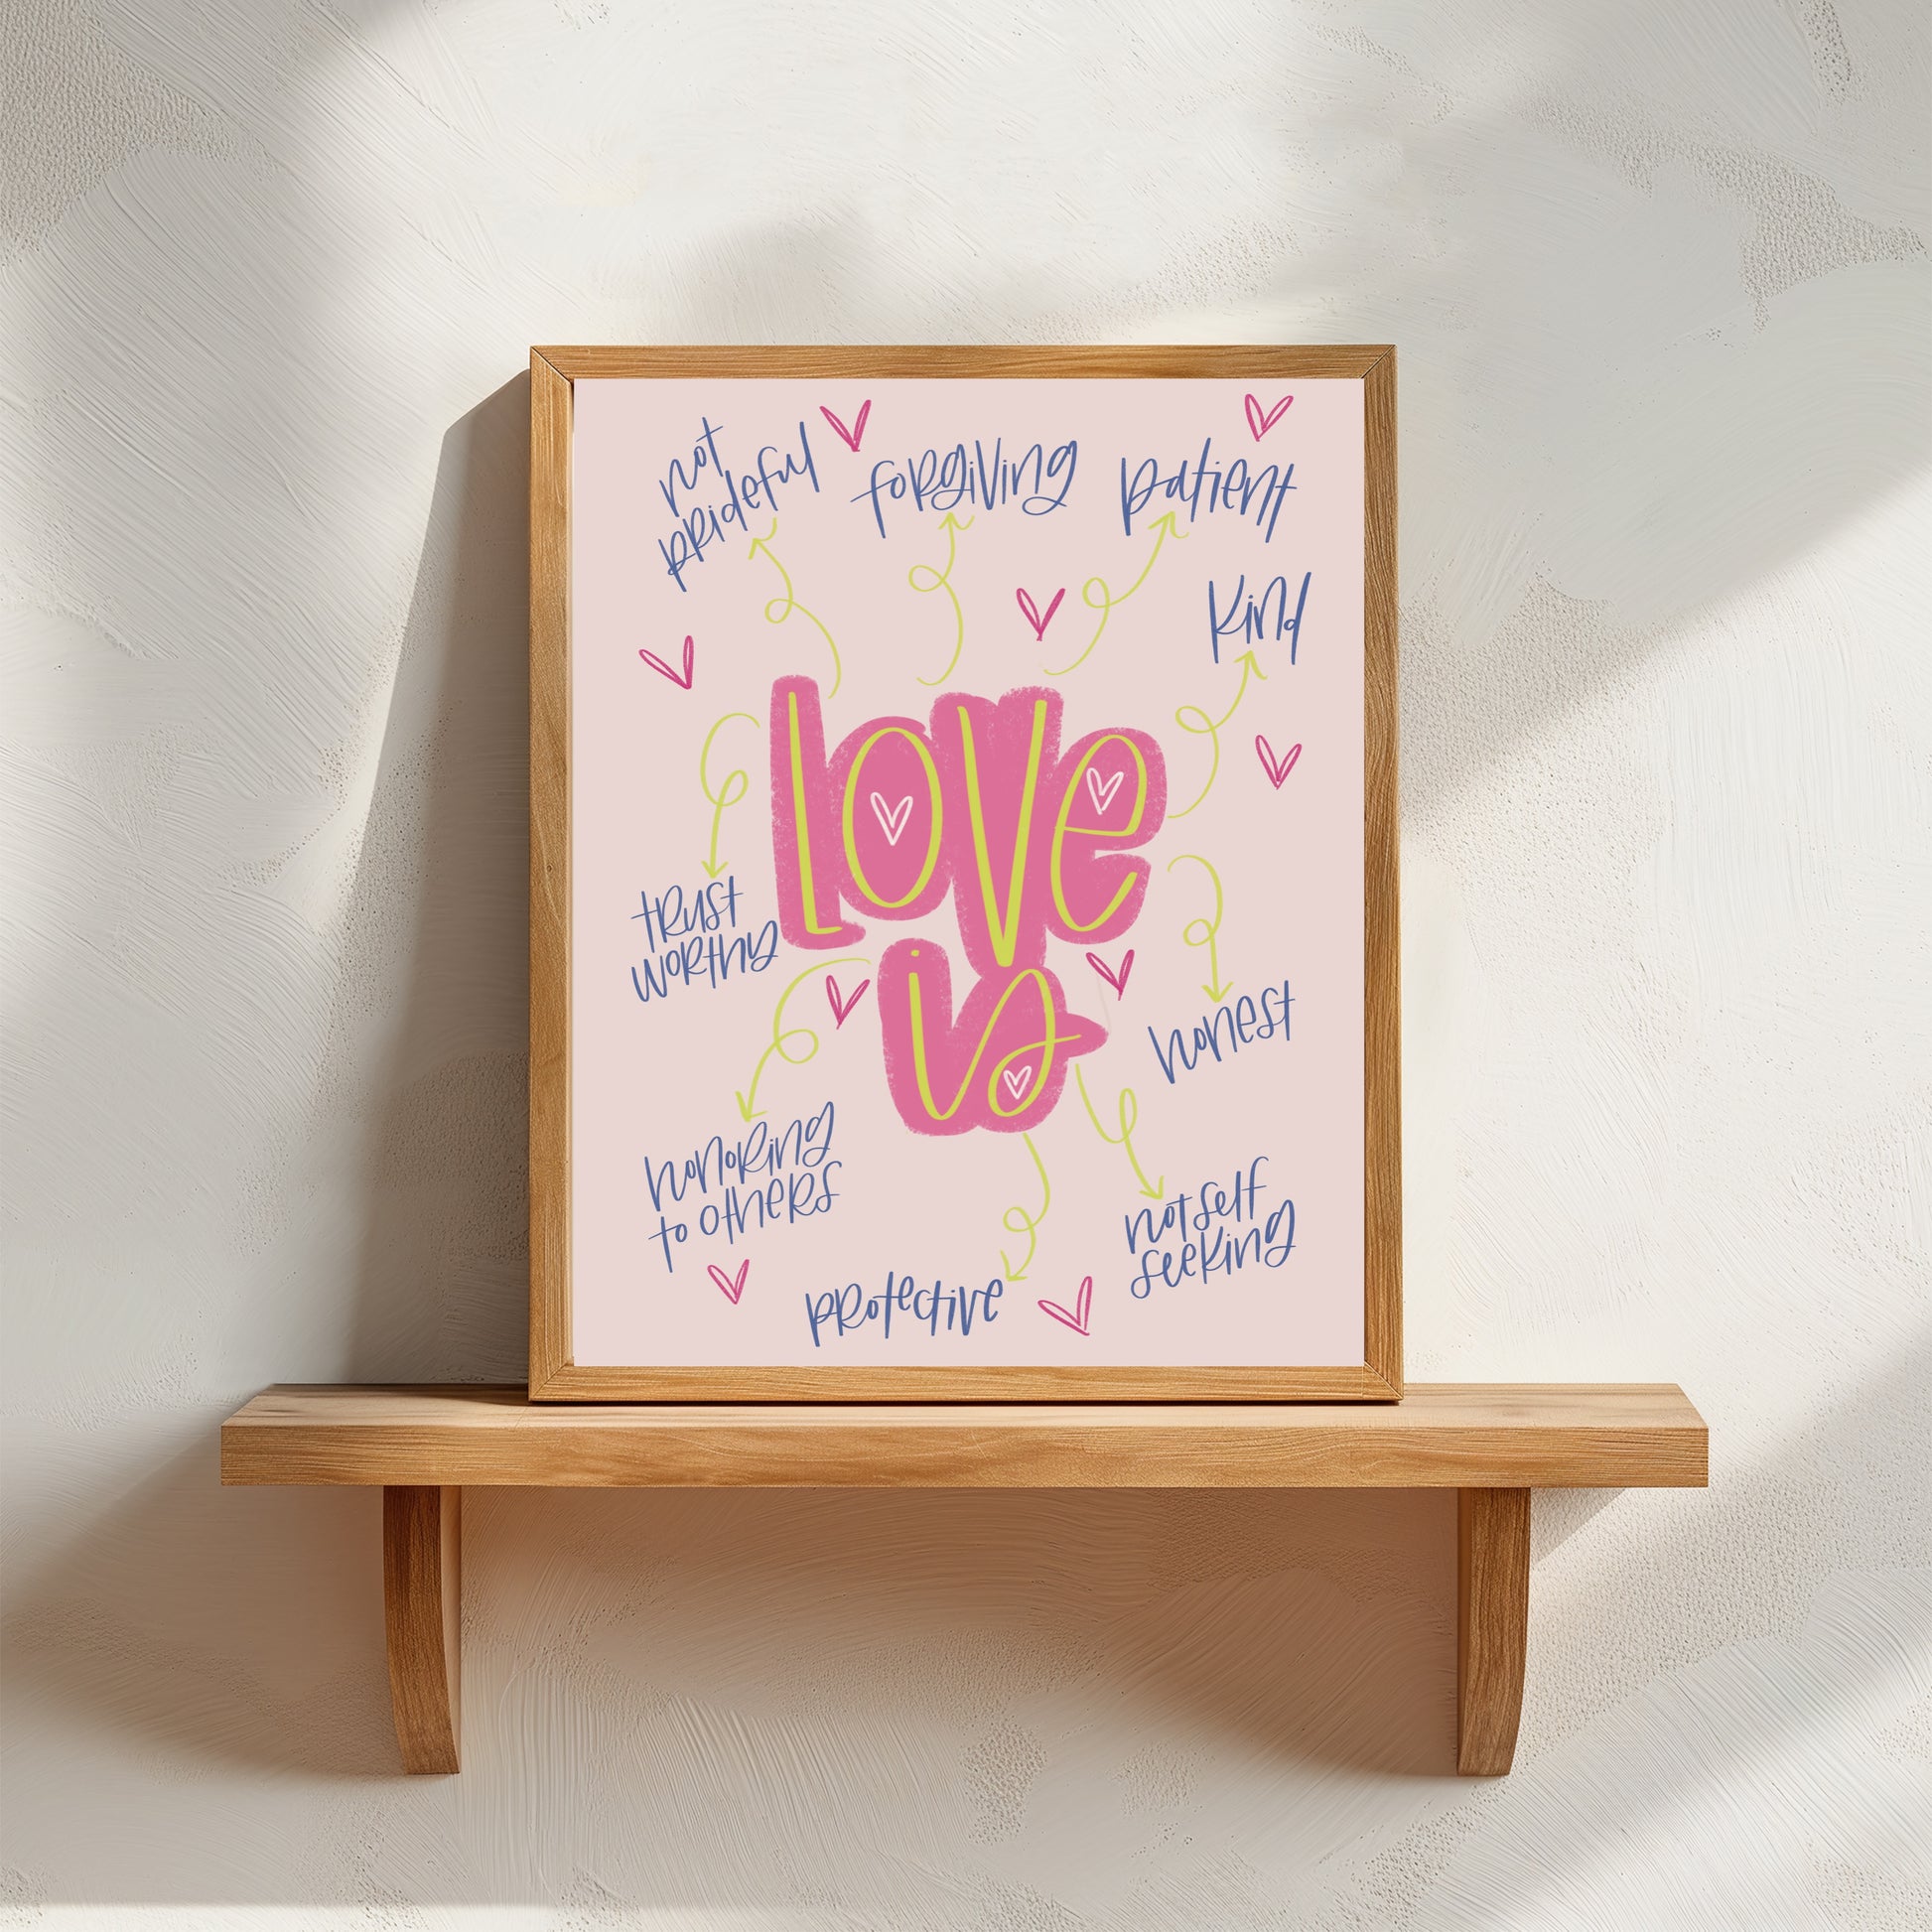 not
prideful
forgiving
patient
kind
love
is
trust
worthy
honest
honoring
to others
not self
seeking
protective